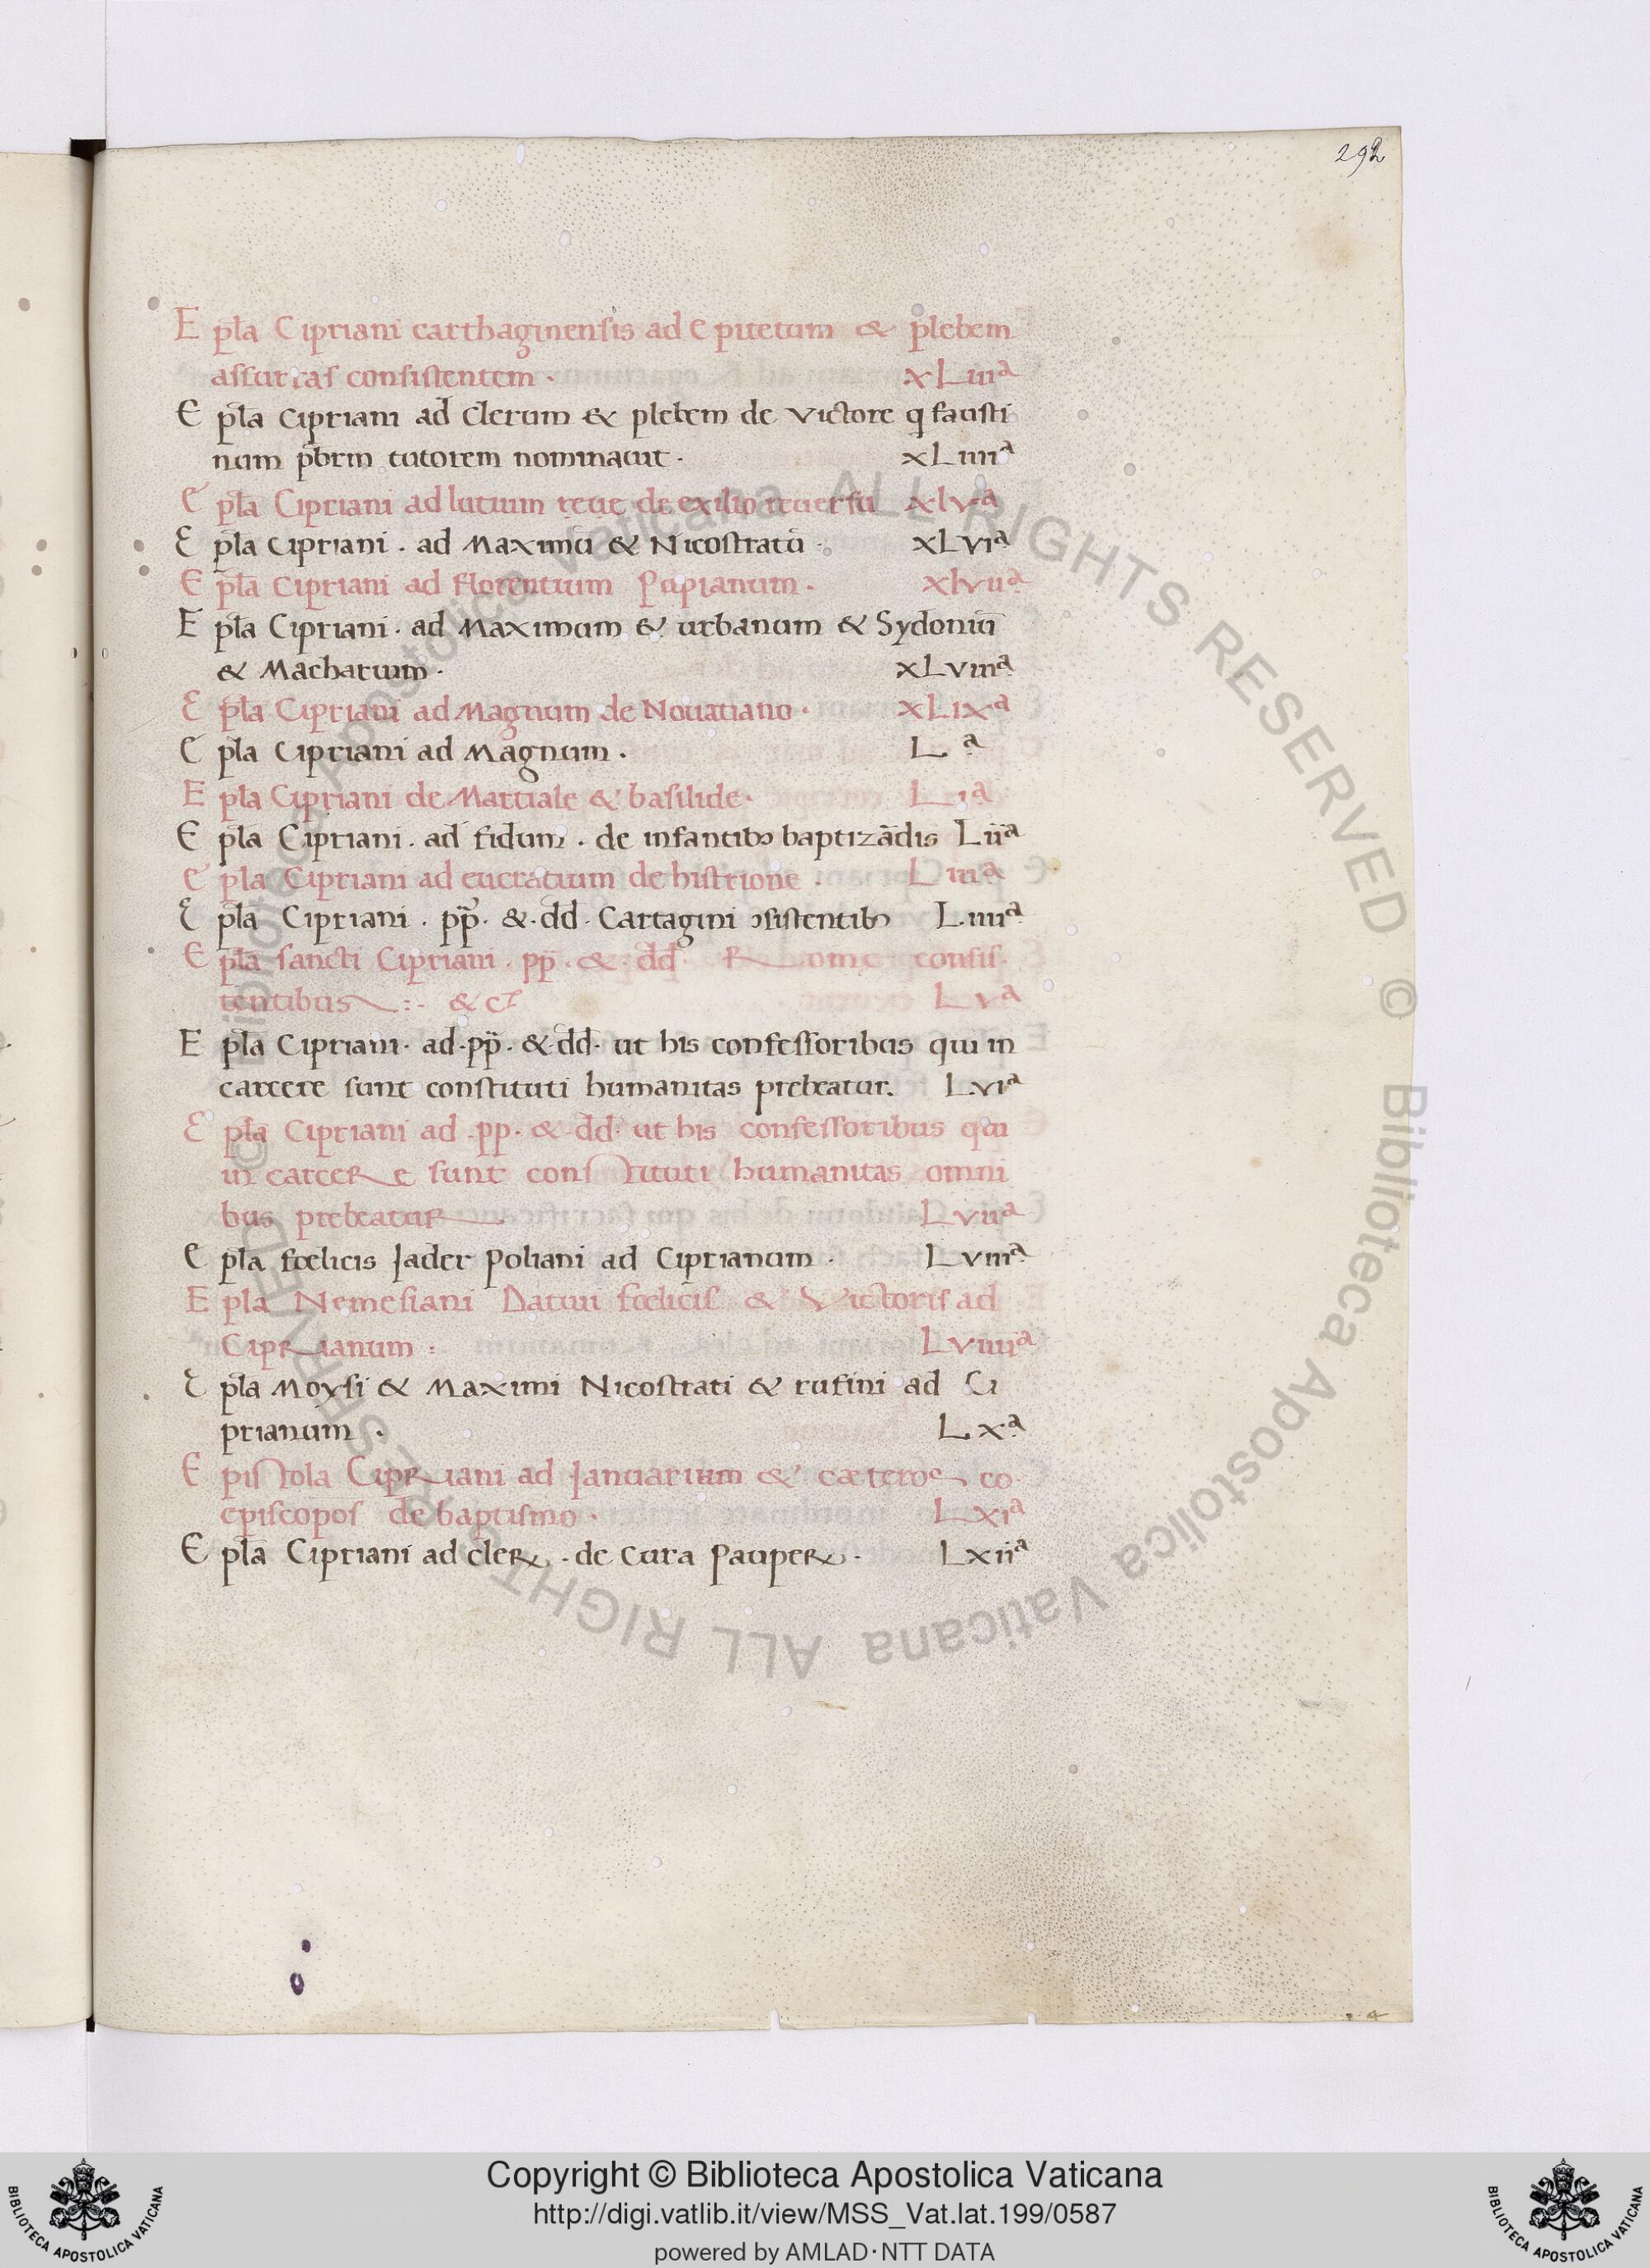 292
E pl̄a Cipriani carthaginensis ad Epitetum & plebem
assuritas consistentem . xLiiiª
E pl̄a Cipriani ad Clerum & plebem de Victore q fausti
num pb̄rm tutorem nominauit . xLiiiiª
E pl̄a Cipriani ad lutium de exilio reuersū xlvª
E pl̄a Cipriani . ad Maximū & Nicostratū . xLviª
E pl̄a Cipriani ad Florentium Pupianum . xlviiª
E pl̄a Cipriani . ad Maximum & urbanum & Sydoniū
& Macharium . xLviiiª
E pl̄a Cipriani ad Magnum de Nouatiano . xLixª
E pl̄a Cipriani ad Magnum . L ª
E pl̄a Cipriani de Martiale & basilide . Liª
E pl̄a Cipriani . ad fidum . de infantibꝫ baptizādis Liiª
E pl̄a Cipriani ad eucratium de histrione . Liiiª
E pl̄a Cipriani . pp̄ . & . dd . Cartagini ꝯsistentibꝫ L.iiiiª
E pl̄a sancti Cipriani . pp̄ . & . dd . Rome consis
tentibus :- & cꝭ Lvª
E pl̄a Cipriani . ad . pp̄ . & . dd . ut his confessoribus qui in
carcere sunt constituti humanitas prebeatur . L.viª
E pl̄a Cipriani ad . pp . & . dd . ut his confessoribus qui
in carcere sunt constituti humanitas omni
bus prebeatur Lviiª
E pl̄a fœlicis Jader Poliani ad Ciprianum . Lviiiª
E pla Nemesiani Datiui fœlicis & Victoris ad
Ciprianum : Lviiiiª
E pl̄a Moysi & Maximi Nicostrati & rufini ad Ci
prianum . Lxª
E pistola Cipriani ad Januarium & cæteros co
episcopos de baptismo . Lxiª
E pl̄a Cipriani ad cleꝝ . de Cura Paupeꝝ . Lxiiª
© Biblioteca Apostolica Vaticana ALL RIGHTS RESERVED © Biblioteca Apostolica Vaticana ALL RIGHTS RESERVED
BIBLIOTECA APOSTOLICA VATICANA
Copyright © Biblioteca Apostolica Vaticana
http://digi.vatlib.it/view/MSS_Vat.lat.199/0587
powered by AMLAD·NTT DATA
BIBLIOTECA APOSTOLICA VATICANA